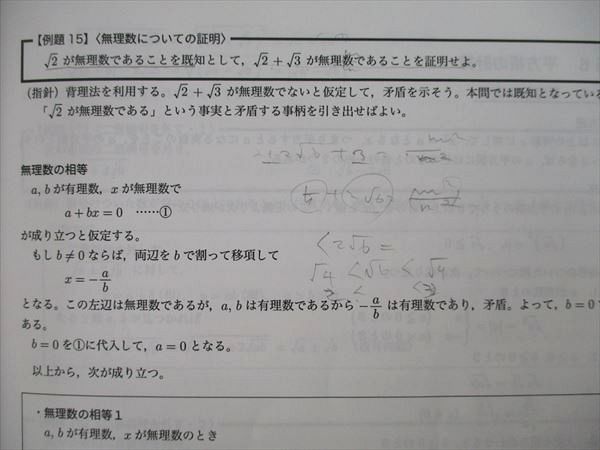 【例題 15】〈無理数についての証明〉
√2 が無理数であることを既知として，√2 + √3 が無理数であることを証明せよ。
(指針) 背理法を利用する。√2 + √3 が無理数でないと仮定して，矛盾を示そう。本問では既知となっている
「√2 が無理数である」という事実と矛盾する事柄を引き出せばよい。
無理数の相等
a, b が有理数，x が無理数で
a + bx = 0 ……①
が成り立つと仮定する。
もし b ≠ 0 ならば，両辺を b で割って移項して
x = −a/b
となる。この左辺は無理数であるが，a, b は有理数であるから −a/b は有理数であり，矛盾。よって，b = 0
ある。
b = 0 を①に代入して，a = 0 となる。
以上から，次が成り立つ。
・無理数の相等 1
a, b が有理数，x が無理数のとき
< 2√6 =
√4 < √6 < √9